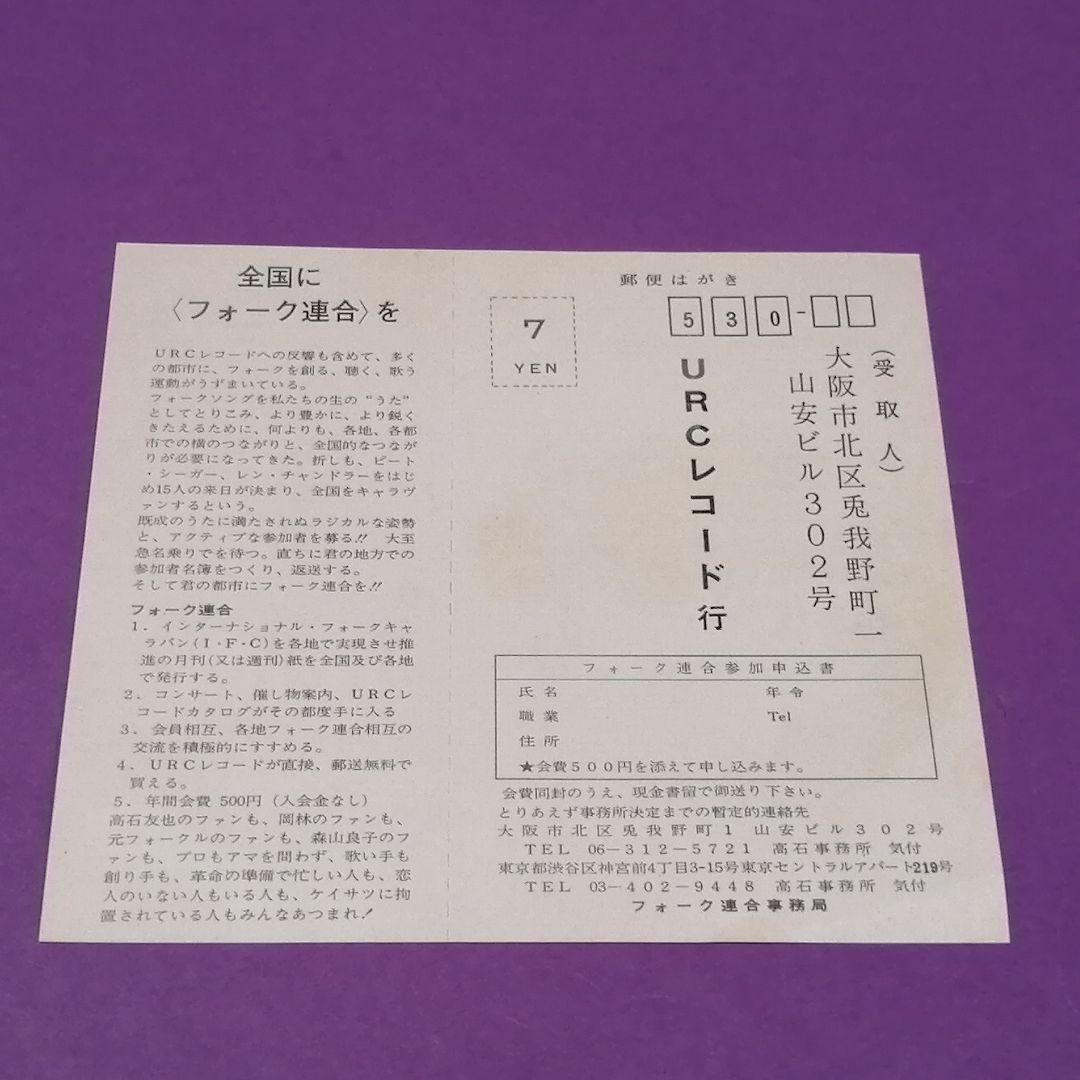 全国に
〈フォーク連合〉を
URCレコードへの反響も含めて、多く
の都市に、フォークを創る、聴く、歌う
運動がうずまいている。
フォークソングを私たちの生の“うた”
としてとりこみ、より豊かに、より鋭く
きたえるために、何よりも、各地、各都
市での横のつながりと、全国的なつなが
りが必要になってきた。折しも、ピート
・シーガー、レン・チャンドラーをはじ
め15人の来日が決まり、全国をキャラヴ
ァンするという。
既成のうたに満たされぬラジカルな姿勢
と、アクティブな参加者を募る!! 大至
急名乗りでを待つ。直ちに君の地方での
参加者名簿をつくり、返送する。
そして君の都市にフォーク連合を!!
フォーク連合
1. インターナショナル・フォークキャ
ラバン(I・F・C)を各地で実現させ推
進の月刊(又は週刊)紙を全国及び各地
で発行する。
2. コンサート、催し物案内、URCレ
コードカタログがその都度手に入る
3. 会員相互、各地フォーク連合相互の
交流を積極的にすすめる。
4. URCレコードが直接、郵送無料で
買える。
5. 年間会費 500円(入会金なし)
高石友也のファンも、岡林のファンも、
元フォークルのファンも、森山良子のフ
ァンも、プロもアマを問わず、歌い手も
創り手も、革命の準備で忙しい人も、恋
人のいない人もいる人も、ケイサツに拘
置されている人もみんなあつまれ!
郵便はがき
7
YEN
530-
(受取人)
大阪市北区兎我野町一
山安ビル302号
URCレコード行
フォーク連合参加申込書
氏名 年令
職業 Tel
住所
★会費500円を添えて申し込みます。
会費同封のうえ、現金書留で御送り下さい。
とりあえず事務所決定までの暫定的連絡先
大阪市北区兎我野町1 山安ビル302号
TEL 06-312-5721 高石事務所 気付
東京都渋谷区神宮前4丁目3-15号東京セントラルアパート219号
TEL 03-402-9448 高石事務所 気付
フォーク連合事務局